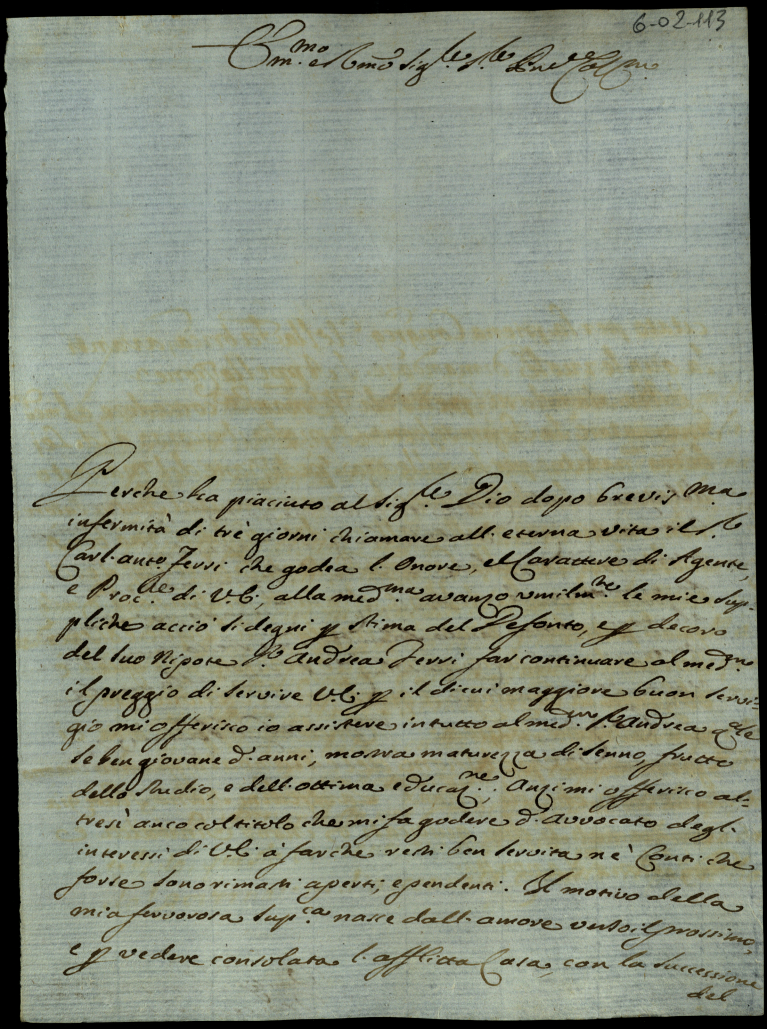 6-02-113
Em.mo e R.mo Sig.re S.re P.ne Col.mo
Perche ha piaciuto al Sig.re Dio dopo brevis.ma
infermità di trè giorni chiamare all'eterna vita il S.r
Carl'anto Ferri che godea l'Onore, e'l Carattere di Agente,
e Proc.re di V.E., alla med.ma avanzo umilm.te le mie sup-
pliche acciò si degni p stima del Defonto, e p decoro
del suo Nipote S.r Andrea Ferri far continuare al med.mo
il preggio di servire V.E. p il di cui maggiore buon servi-
gio mi offerisco io assistere in tutto al med.mo S.r Andrea q.ale
se ben giovane d'anni, mostra maturezza di senno, frutto
dello studio, e dell'ottima educaz.ne; Anzi mi offerisco al-
tresì anco col titolo che mi fa godere d'Avvocato degl'
interessi di V.E. à far che resti ben servita nè Conti che
forse sono rimasti aperti, e pendenti. Il motivo della
mia fervorosa sup.ca nasce dall'amore verso il prossimo,
e p vedere consolata l'afflitta Casa, con la successione
del